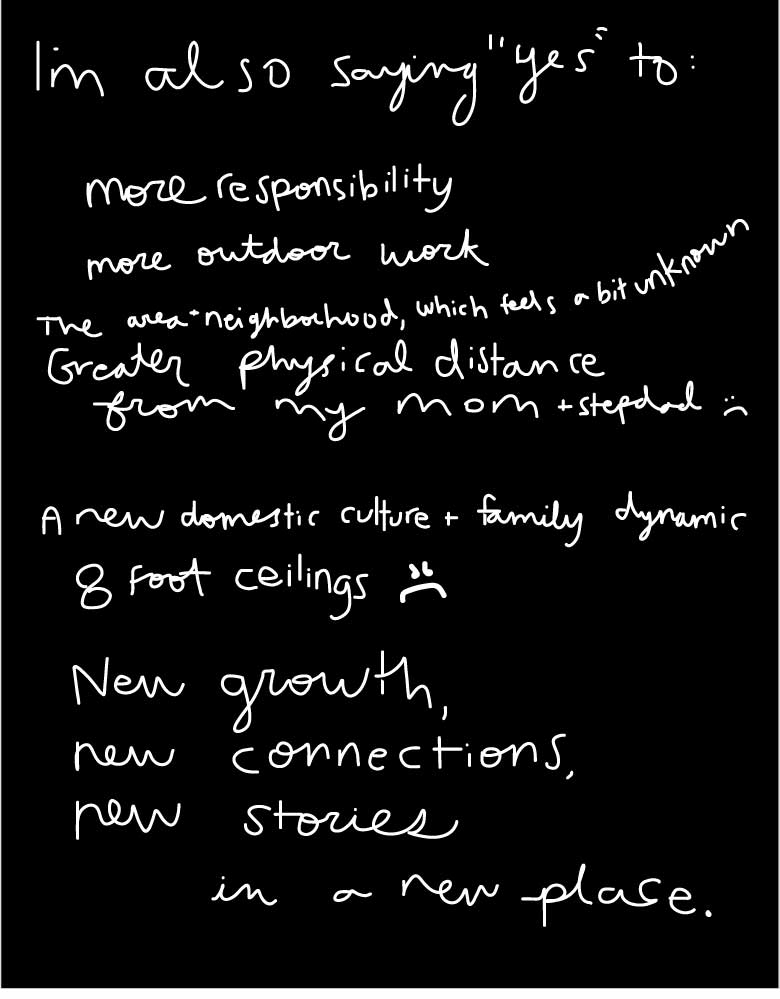 I'm also saying "yes" to:
more responsibility
more outdoor work
The area + neighborhood, which feels a bit unknown
Greater physical distance
from my mom + stepdad :(
A new domestic culture + family dynamic
8 foot ceilings :(
New growth,
new connections,
new stories
in a new place.